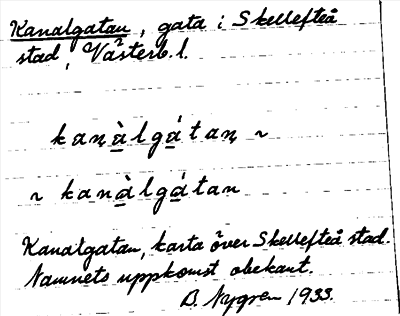 Kanalgatan, gata i Skellefteå
stad, Västerb. l.
kaṇà̲lgá̲taṇ ~
~ kanà̲lgá̲tan
Kanalgatan, karta över Skellefteå stad.
Namnets uppkomst obekant.
B. Nygren 1933.